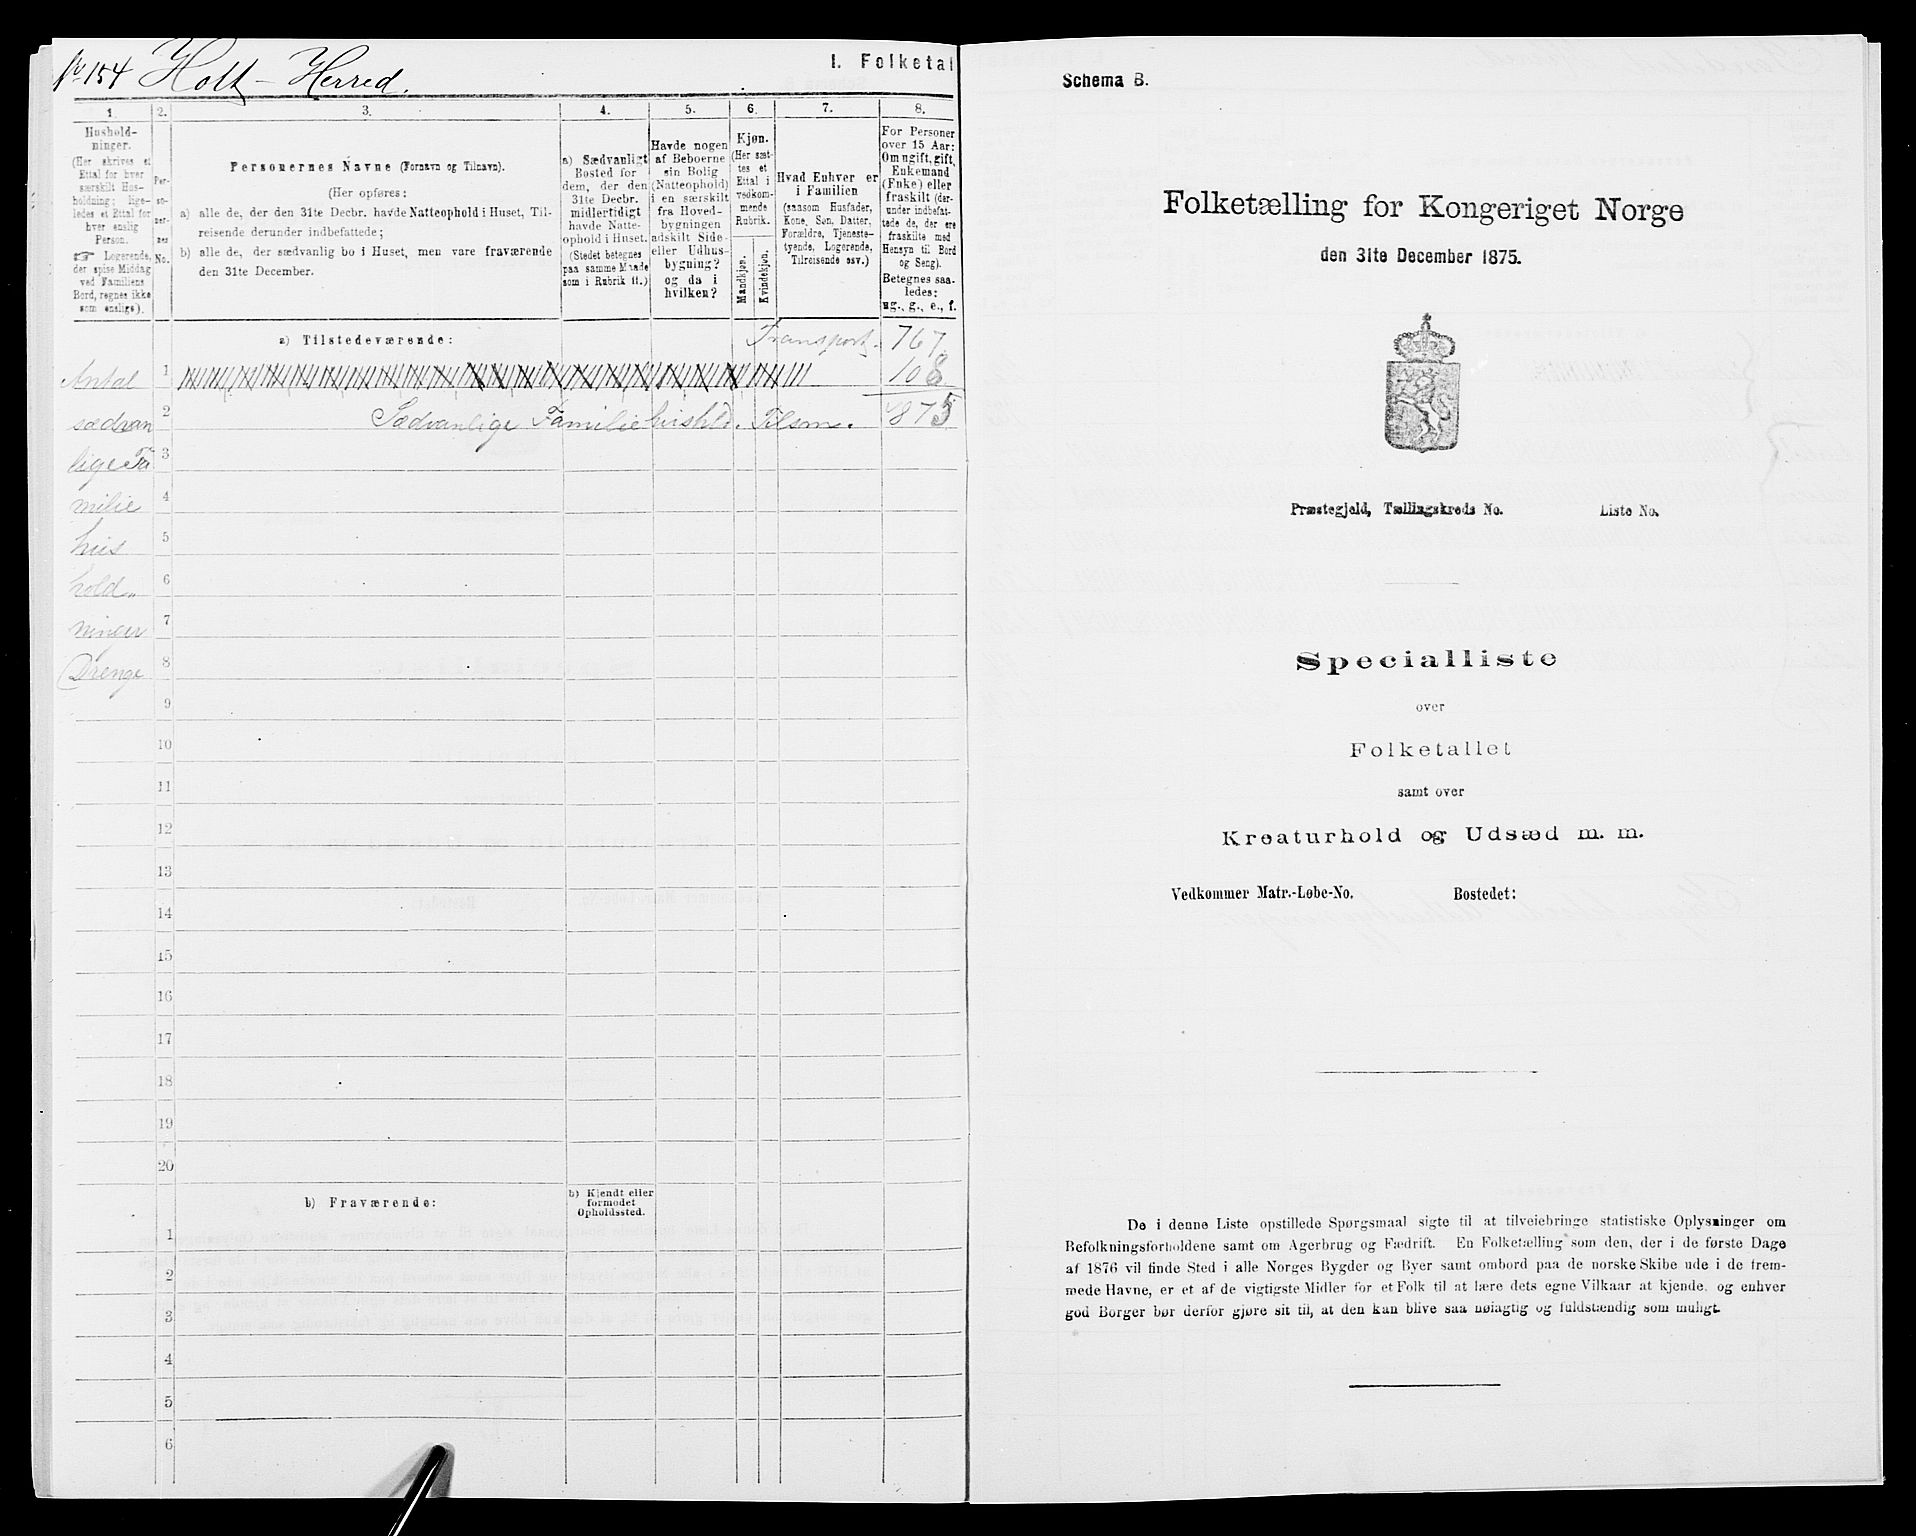 No 154 Holt - Herred.
I. Folketal
1.
2.
3.
4.
5.
6.
7.
8.
Hushold-
ninger.
(Her skrives et
Ettal for hver
særskilt Hus-
holdning; lige-
ledes et Ettal for
hver enslig
Person.
☞ Logerende,
der spise Middag
ved Familiens
Bord, regnes ikke
som enslige).
Per-
so-
ner-
nes
No.
Personernes Navne (Fornavn og Tilnavn).
(Her opføres:
a) alle de, der den 31te Decbr. havde Natteophold i Huset, Til-
reisende derunder indbefattede;
b) alle de, der sædvanlig bo i Huset, men vare fraværende
den 31te December.
a) Sædvanligt
Bosted for
dem, der den
31te Decbr.
midlertidigt
havde Natte-
ophold i Huset.
(Stedet betegnes
paa samme Maade
som i Rubrik 11.)
Havde nogen
af Beboerne
sin Bolig
(Natteophold)
i en særskilt
fra Hoved-
bygningen
adskilt Side-
eller Udhus-
bygning?
og da i
hvilken?
Kjøn.
(Her sæt-
tes et
Ettal i
vedkom-
mende
Rubrik.
Mandkjøn.
Kvindekjøn.
Hvad Enhver er
i Familien
(saasom Husfader,
Kone, Søn, Datter,
Forældre, Tjeneste-
tyende, Logerende,
Tilreisende osv.)
For Personer
over 15 Aar:
Om ugift, gift,
Enkemand
(Enke) eller
fraskilt (der-
under indbefat-
tede de, der ere
fraskilte med
Hensyn til Bord
og Seng).
Betegnes saa-
ledes:
ug., g., e., f.
a) Tilstedeværende:
Transport. 767.
Antal 1 108
sædvan 2 Sædvanlige Familiehushld. Tilsm. 875
lige Fa 3
milie 4
hus 5
hold„ 6
ninger 7
Drenge 8
9
10
11
12
13
14
15
16
17
18
19
20
b) Fraværende:
b) Kjendt eller
formodet
Opholdssted.
1
2
3
4
5
6
Schema B.
Folketælling for Kongeriget Norge
den 31te December 1875.
Præstegjeld, Tællingskreds No. Liste No.
Specialliste
over
Folketallet
samt over
Kreaturhold og Udsæd m. m.
Vedkommer Matr.-Løbe-No. Bostedet:
De i denne Liste opstillede Spørgsmaal sigte til at tilveiebringe statistiske Oplysninger om
Befolkningsforholdene samt om Agerbrug og Fædrift. En Folketælling som den, der i de første Dage
af 1876 vil finde Sted i alle Norges Bygder og Byer samt ombord paa de norske Skibe ude i de frem-
mede Havne, er et af de vigtigste Midler for et Folk til at lære dets egne Vilkaar at kjende, og enhver
god Borger bør derfor gjøre sit til, at den kan blive saa nøiagtig og fuldstændig som muligt.